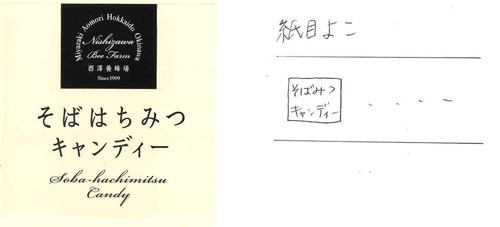 Miyazaki Aomori Hokkaido Okinawa
Nishizawa
Bee Farm
西澤養蜂場
Since1999
そばはちみつ
キャンディー
Soba-hachimitsu
Candy
紙目よこ
そばみつ
キャンディー